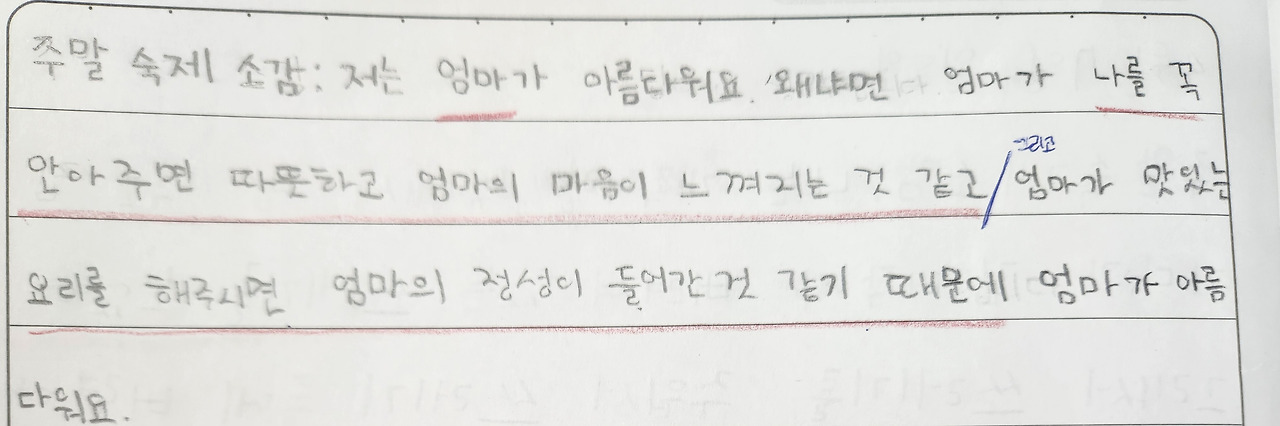 주말 숙제 소감: 저는 엄마가 아름다워요. 왜냐면 엄마가 나를 꼭
안아주면 따뜻하고 엄마의 마음이 느껴지는 것 같고/그리고 엄마가 맛있는
요리를 해주시면 엄마의 정성이 들어간 것 같기 때문에 엄마가 아름
다워요.